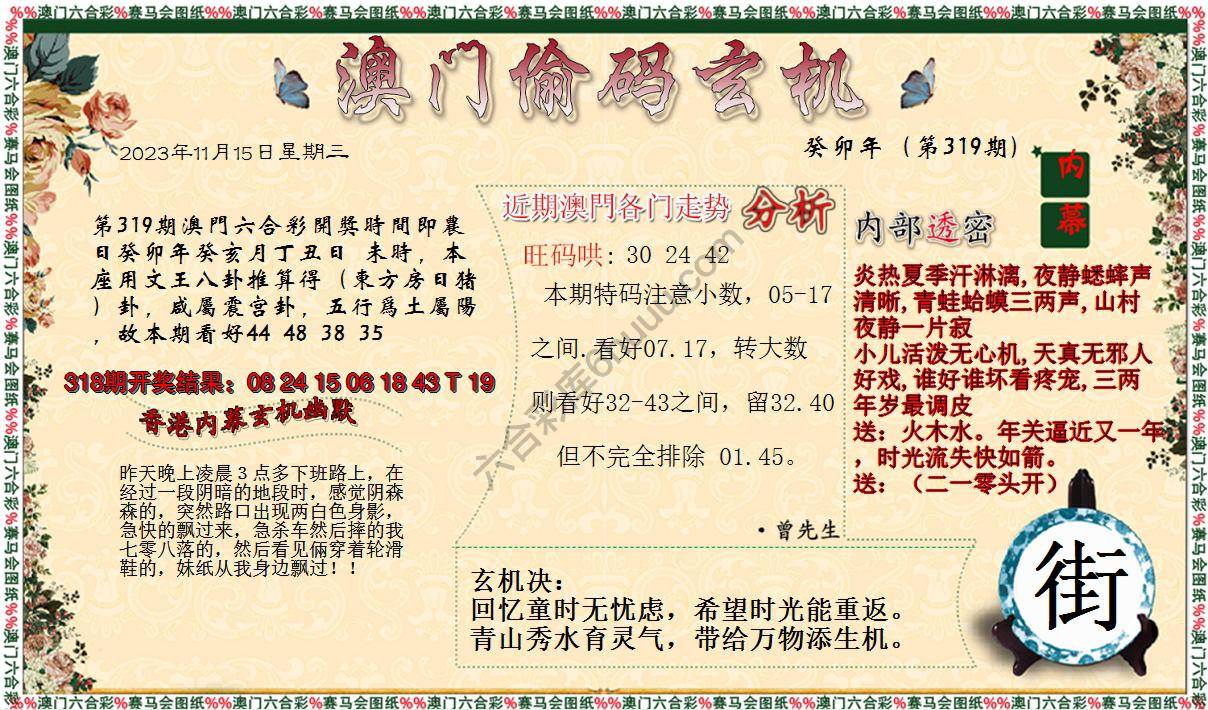 %%澳门六合彩%赛马会图纸%%澳门六合彩%赛马会图纸%%澳门六合彩%赛马会图纸%%澳门六合彩%赛马会图纸%%澳门六合彩%赛马会图纸%%澳门六合彩%赛马会图纸
澳门偷码玄机
2023年11月15日星期三
癸卯年（第319期）
内幕
第319期澳門六合彩開獎時間即農
日癸卯年癸亥月丁丑日 未時，本
座用文王八卦推算得（東方房日猪
）卦，咸屬震宫卦，五行爲土屬陽
，故本期看好44 48 38 35
318期开奖结果：08 24 15 06 18 43 T 19
香港内幕玄机幽默
昨天晚上凌晨３点多下班路上，在
经过一段阴暗的地段时，感觉阴森
森的，突然路口出现两白色身影，
急快的飘过来，急杀车然后摔的我
七零八落的，然后看见俩穿着轮滑
鞋的，妹纸从我身边飘过！！
近期澳門各门走势 分析
旺码哄: 30 24 42
本期特码注意小数，05-17
之间.看好07.17，转大数
则看好32-43之间，留32.40
但不完全排除 01.45。
·曾先生
内部透密
炎热夏季汗淋漓,夜静蟋蟀声
清晰,青蛙蛤蟆三两声,山村
夜静一片寂
小儿活泼无心机,天真无邪人
好戏,谁好谁坏看疼宠,三两
年岁最调皮
送：火木水。年关逼近又一年
，时光流失快如箭。
送：（二一零头开）
玄机决：
回忆童时无忧虑，希望时光能重返。
青山秀水育灵气，带给万物添生机。
街
%%澳门六合彩%赛马会图纸%%澳门六合彩%赛马会图纸%%澳门六合彩%赛马会图纸%%澳门六合彩%赛马会图纸%%澳门六合彩%赛马会图纸%%澳门六合彩%赛马会图纸